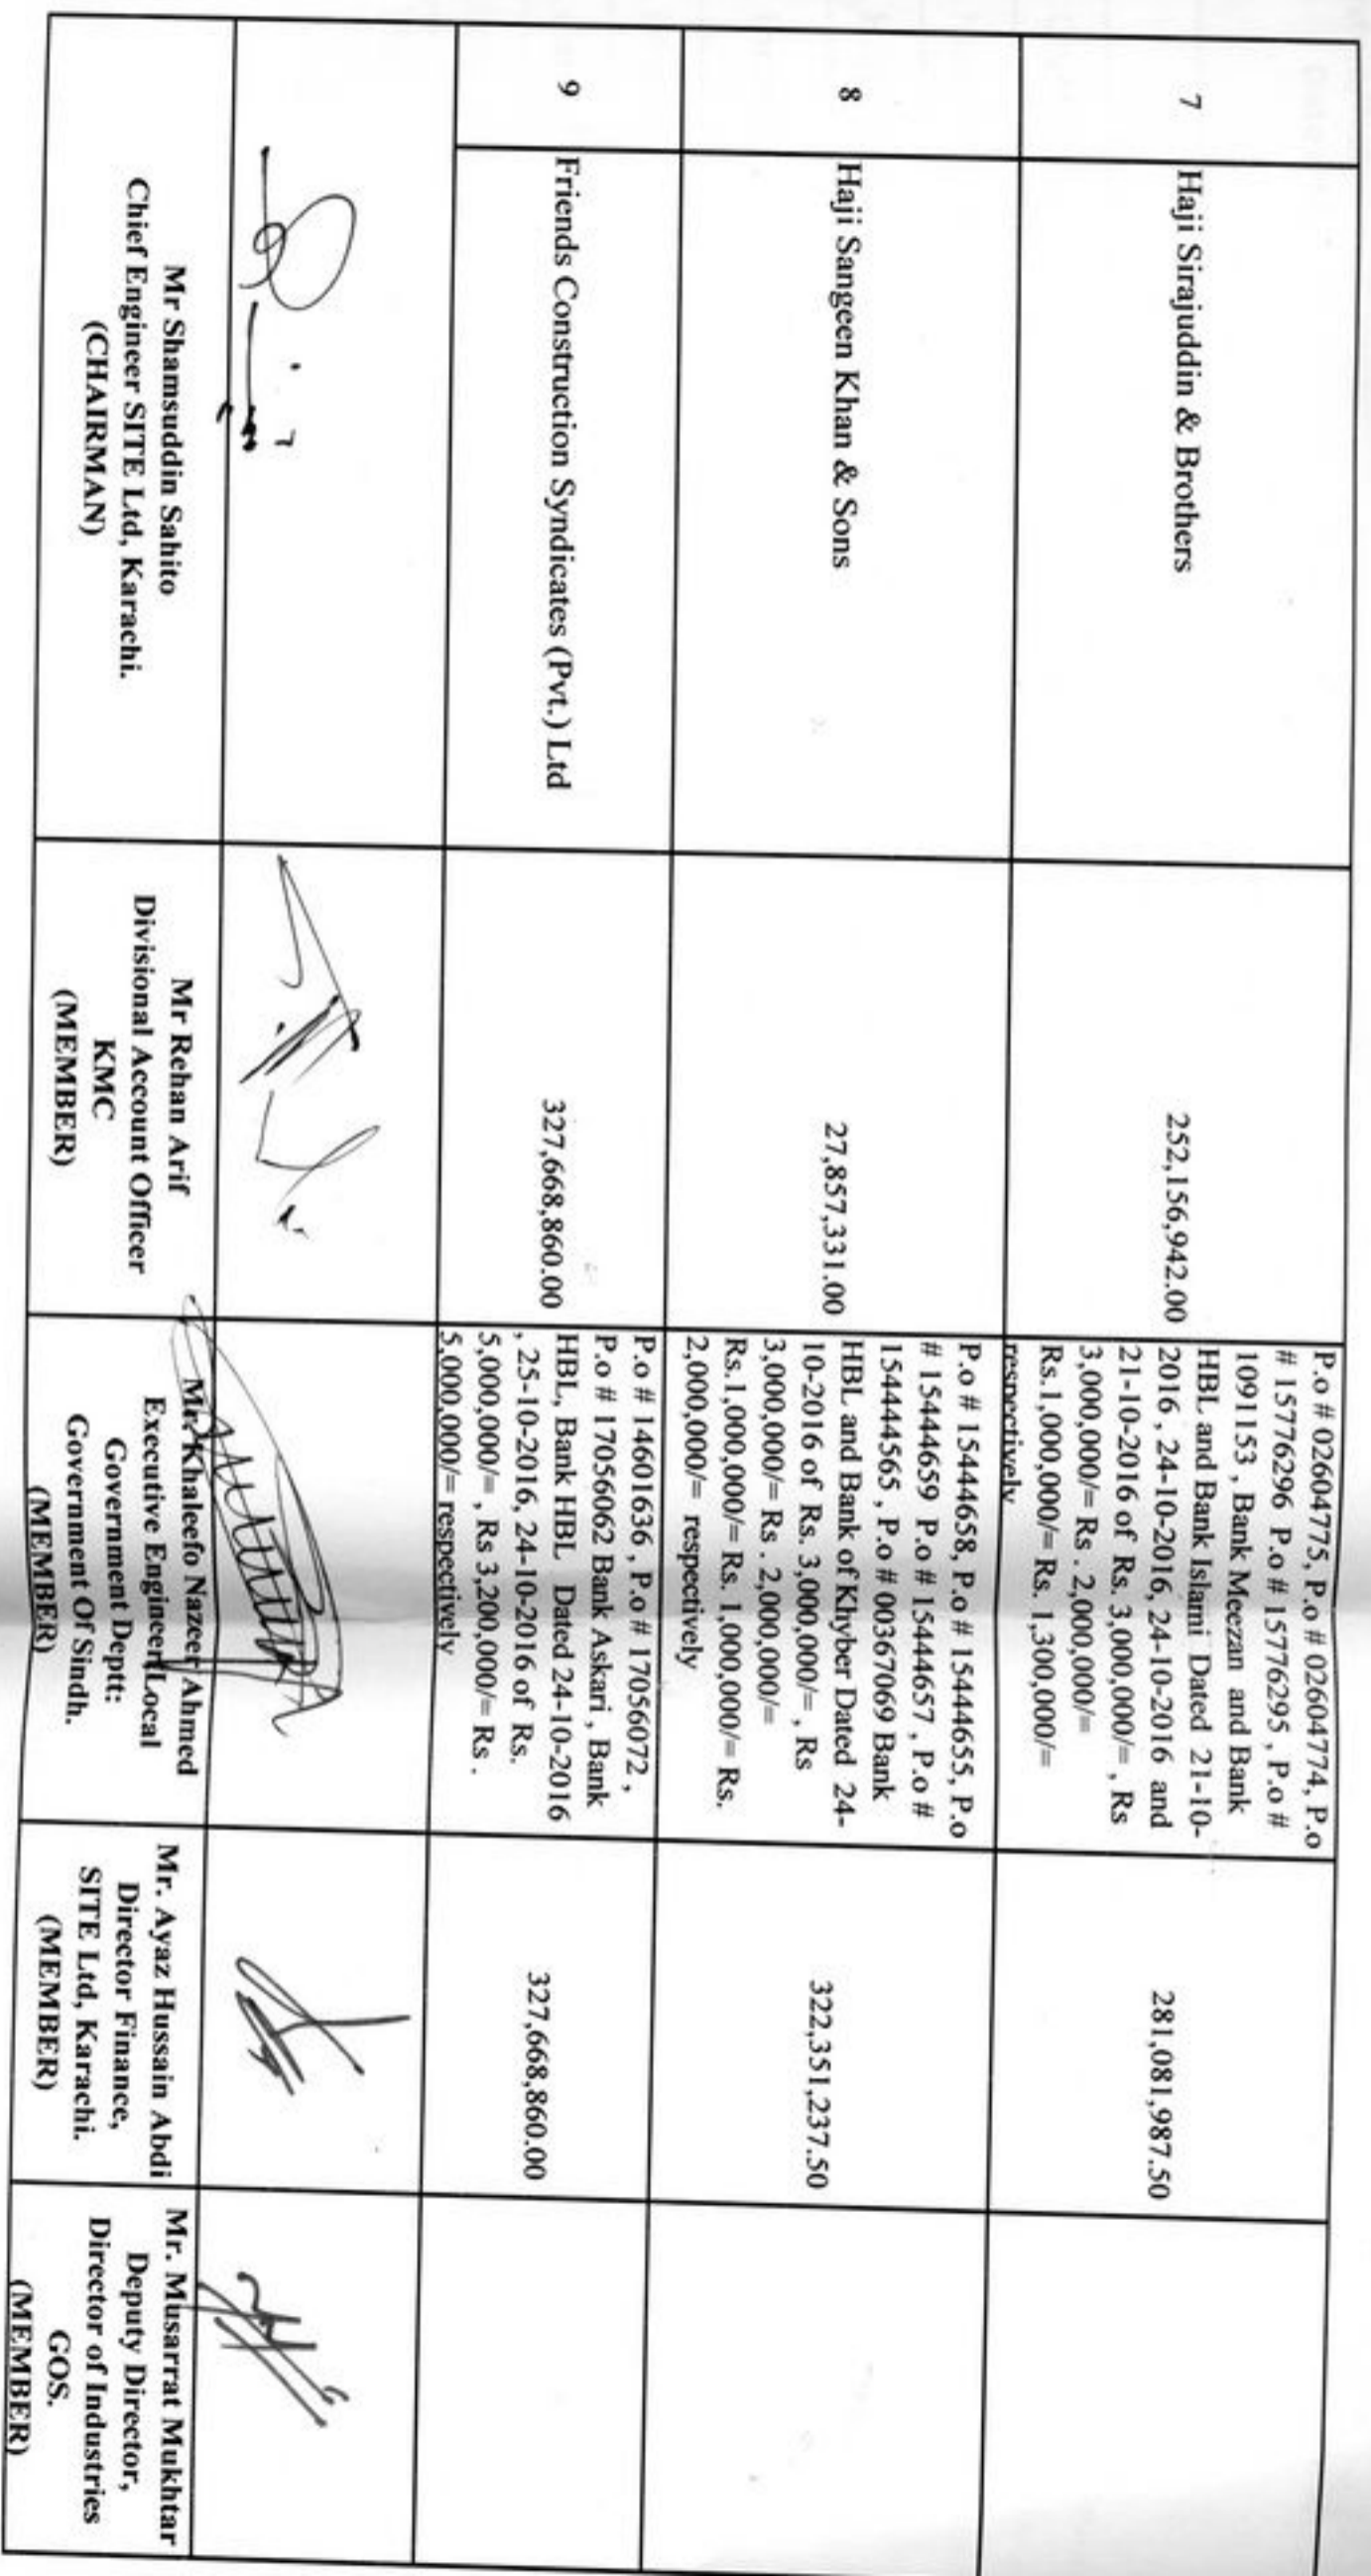 7
Haji Sirajuddin & Brothers
252,156,942.00
P.o # 02604775, P.o # 02604774, P.o
# 15776296 P.o # 15776295 , P.o #
1091153 , Bank Meezan and Bank
HBL and Bank Islami Dated 21-10-
2016 , 24-10-2016, 24-10-2016 and
21-10-2016 of Rs. 3,000,000/= , Rs
3,000,000/= Rs . 2,000,000/=
Rs.1,000,000/= Rs. 1,300,000/=
respectively
281,081,987.50
8
Haji Sangeen Khan & Sons
27,857,331.00
P.o # 15444658, P.o # 15444655, P.o
# 15444659 P.o # 15444657 , P.o #
15444565 , P.o # 00367069 Bank
HBL and Bank of Khyber Dated 24-
10-2016 of Rs. 3,000,000/= , Rs
3,000,000/= Rs . 2,000,000/=
Rs.1,000,000/= Rs. 1,000,000/= Rs.
2,000,000/= respectively
322,351,237.50
9
Friends Construction Syndicates (Pvt.) Ltd
327,668,860.00
P.o # 14601636 , P.o # 17056072 ,
P.o # 17056062 Bank Askari , Bank
HBL, Bank HBL Dated 24-10-2016
, 25-10-2016, 24-10-2016 of Rs.
5,000,000/= , Rs 3,200,000/= Rs .
5,000,000/= respectively
327,668,860.00
Mr Shamsuddin Sahito
Chief Engineer SITE Ltd, Karachi.
(CHAIRMAN)
Mr Rehan Arif
Divisional Account Officer
KMC
(MEMBER)
Mr. Khaleefo Nazeer Ahmed
Executive Engineer Local
Government Deptt:
Government Of Sindh.
(MEMBER)
Mr. Ayaz Hussain Abdi
Director Finance,
SITE Ltd, Karachi.
(MEMBER)
Mr. Musarrat Mukhtar
Deputy Director,
Director of Industries
GOS.
(MEMBER)